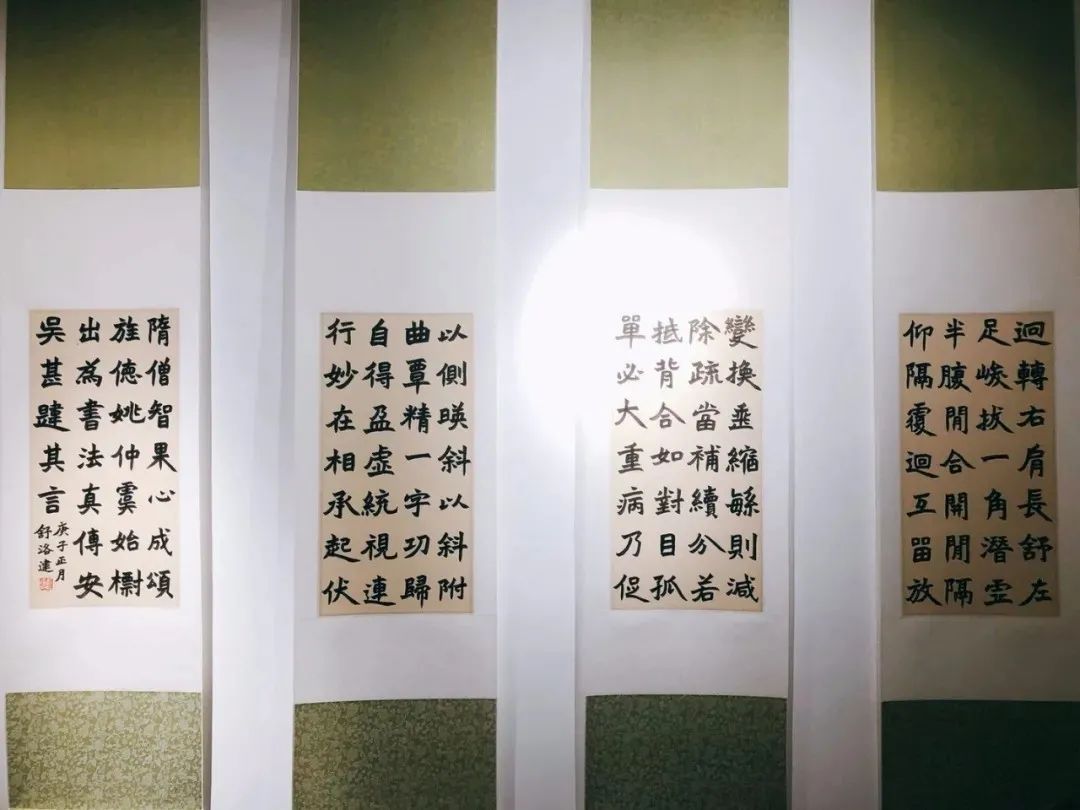 迴轉右肩長舒左
足峻拔一角潛虛
半腹閒合開閒隔
仰隔覆迴互留放
變換垂縮緐則減
除疏當補續分若
抵背合如對目孤
單必大重病乃促
以側暎斜以斜附
曲覃精一字功歸
自得盈虛統視連
行妙在相承起伏
隋僧智果心成頌
旌德姚仲虞始檦
出為書法真傳安
吳甚韙其言
庚子正月
舒洛建